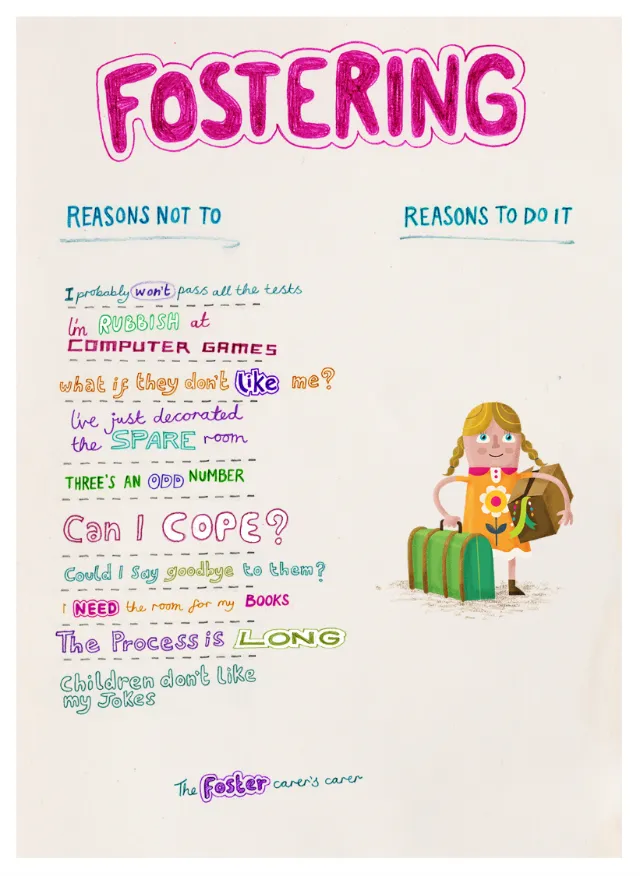 FOSTERING
REASONS NOT TO
REASONS TO DO IT
I probably won't pass all the tests
I'm RUBBISH at
COMPUTER GAMES
what if they don't like me?
I've just decorated
the SPARE room
THREE'S AN ODD NUMBER
Can I COPE?
Could I say goodbye to them?
I NEED the room for my BOOKS
The Process is LONG
Children don't like
my JoKes
The Foster carer's carer